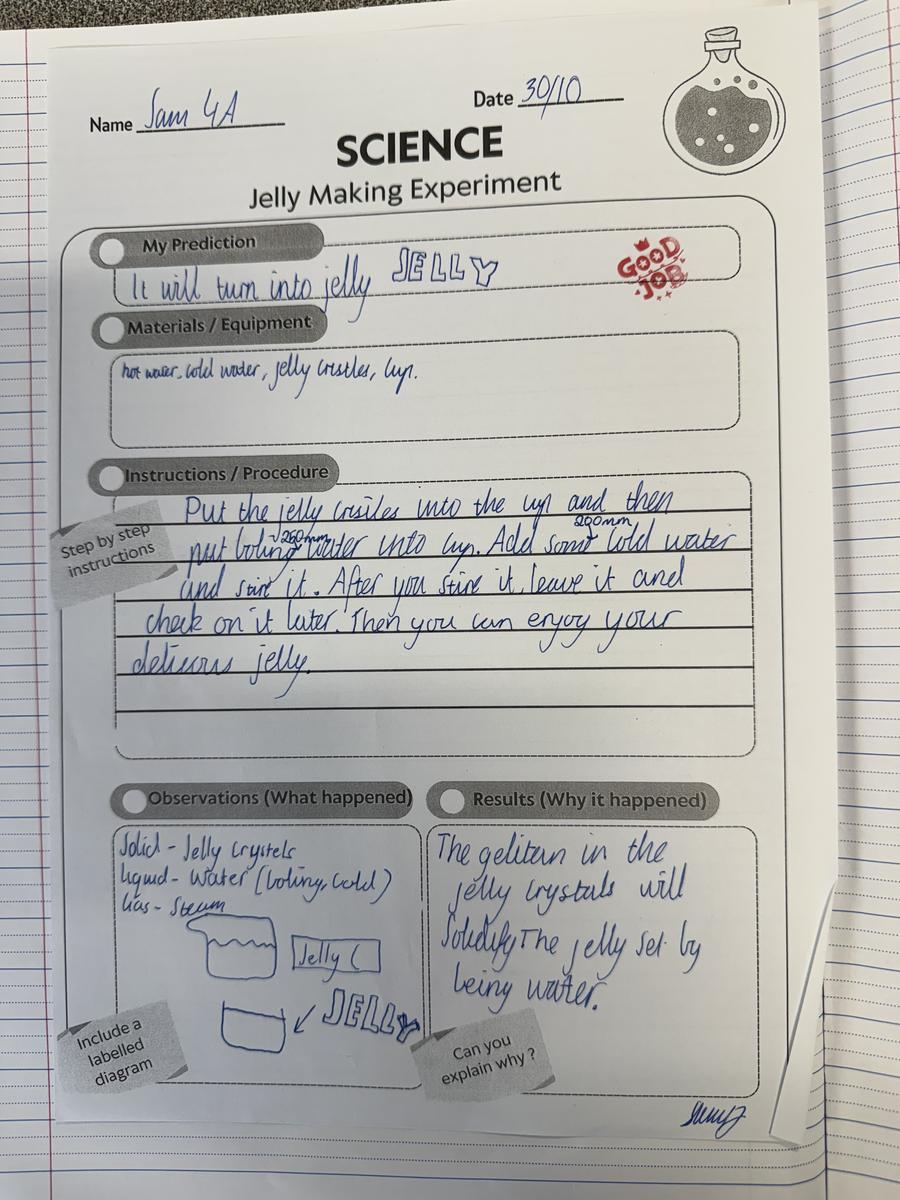 Name Sam 4A
Date 30/10
SCIENCE
Jelly Making Experiment
My Prediction
It will turn into jelly JELLY
GOOD
JOB
Materials / Equipment
hot water, cold water, jelly cristles, cup.
Instructions / Procedure
Step by step
instructions
Put the jelly cristles into the cup and then
250mm 200mm
put boling water into cup. Add some cold water
and stire it. After you stire it, leave it and
check on it later. Then you can enjoy your
delicous jelly.
Observations (What happened)
Solid - Jelly Crystels
liquid - Water (boling, cold)
Gas - Steam
Jelly C
JELLY
Include a
labelled
diagram
Results (Why it happened)
The gelitan in the
jelly crystals will
Solidify The jelly set by
being water.
Can you
explain why ?